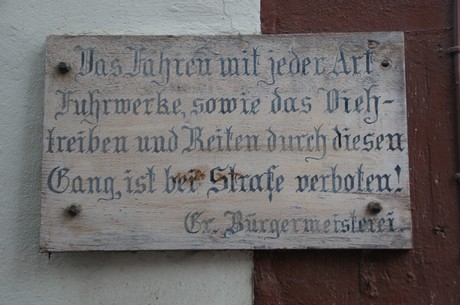 Das Fahren mit jeder Art
Fuhrwerke, sowie das Vieh-
treiben und Reiten durch diesen
Gang, ist bei Strafe verboten!
Gr. Bürgermeisterei.